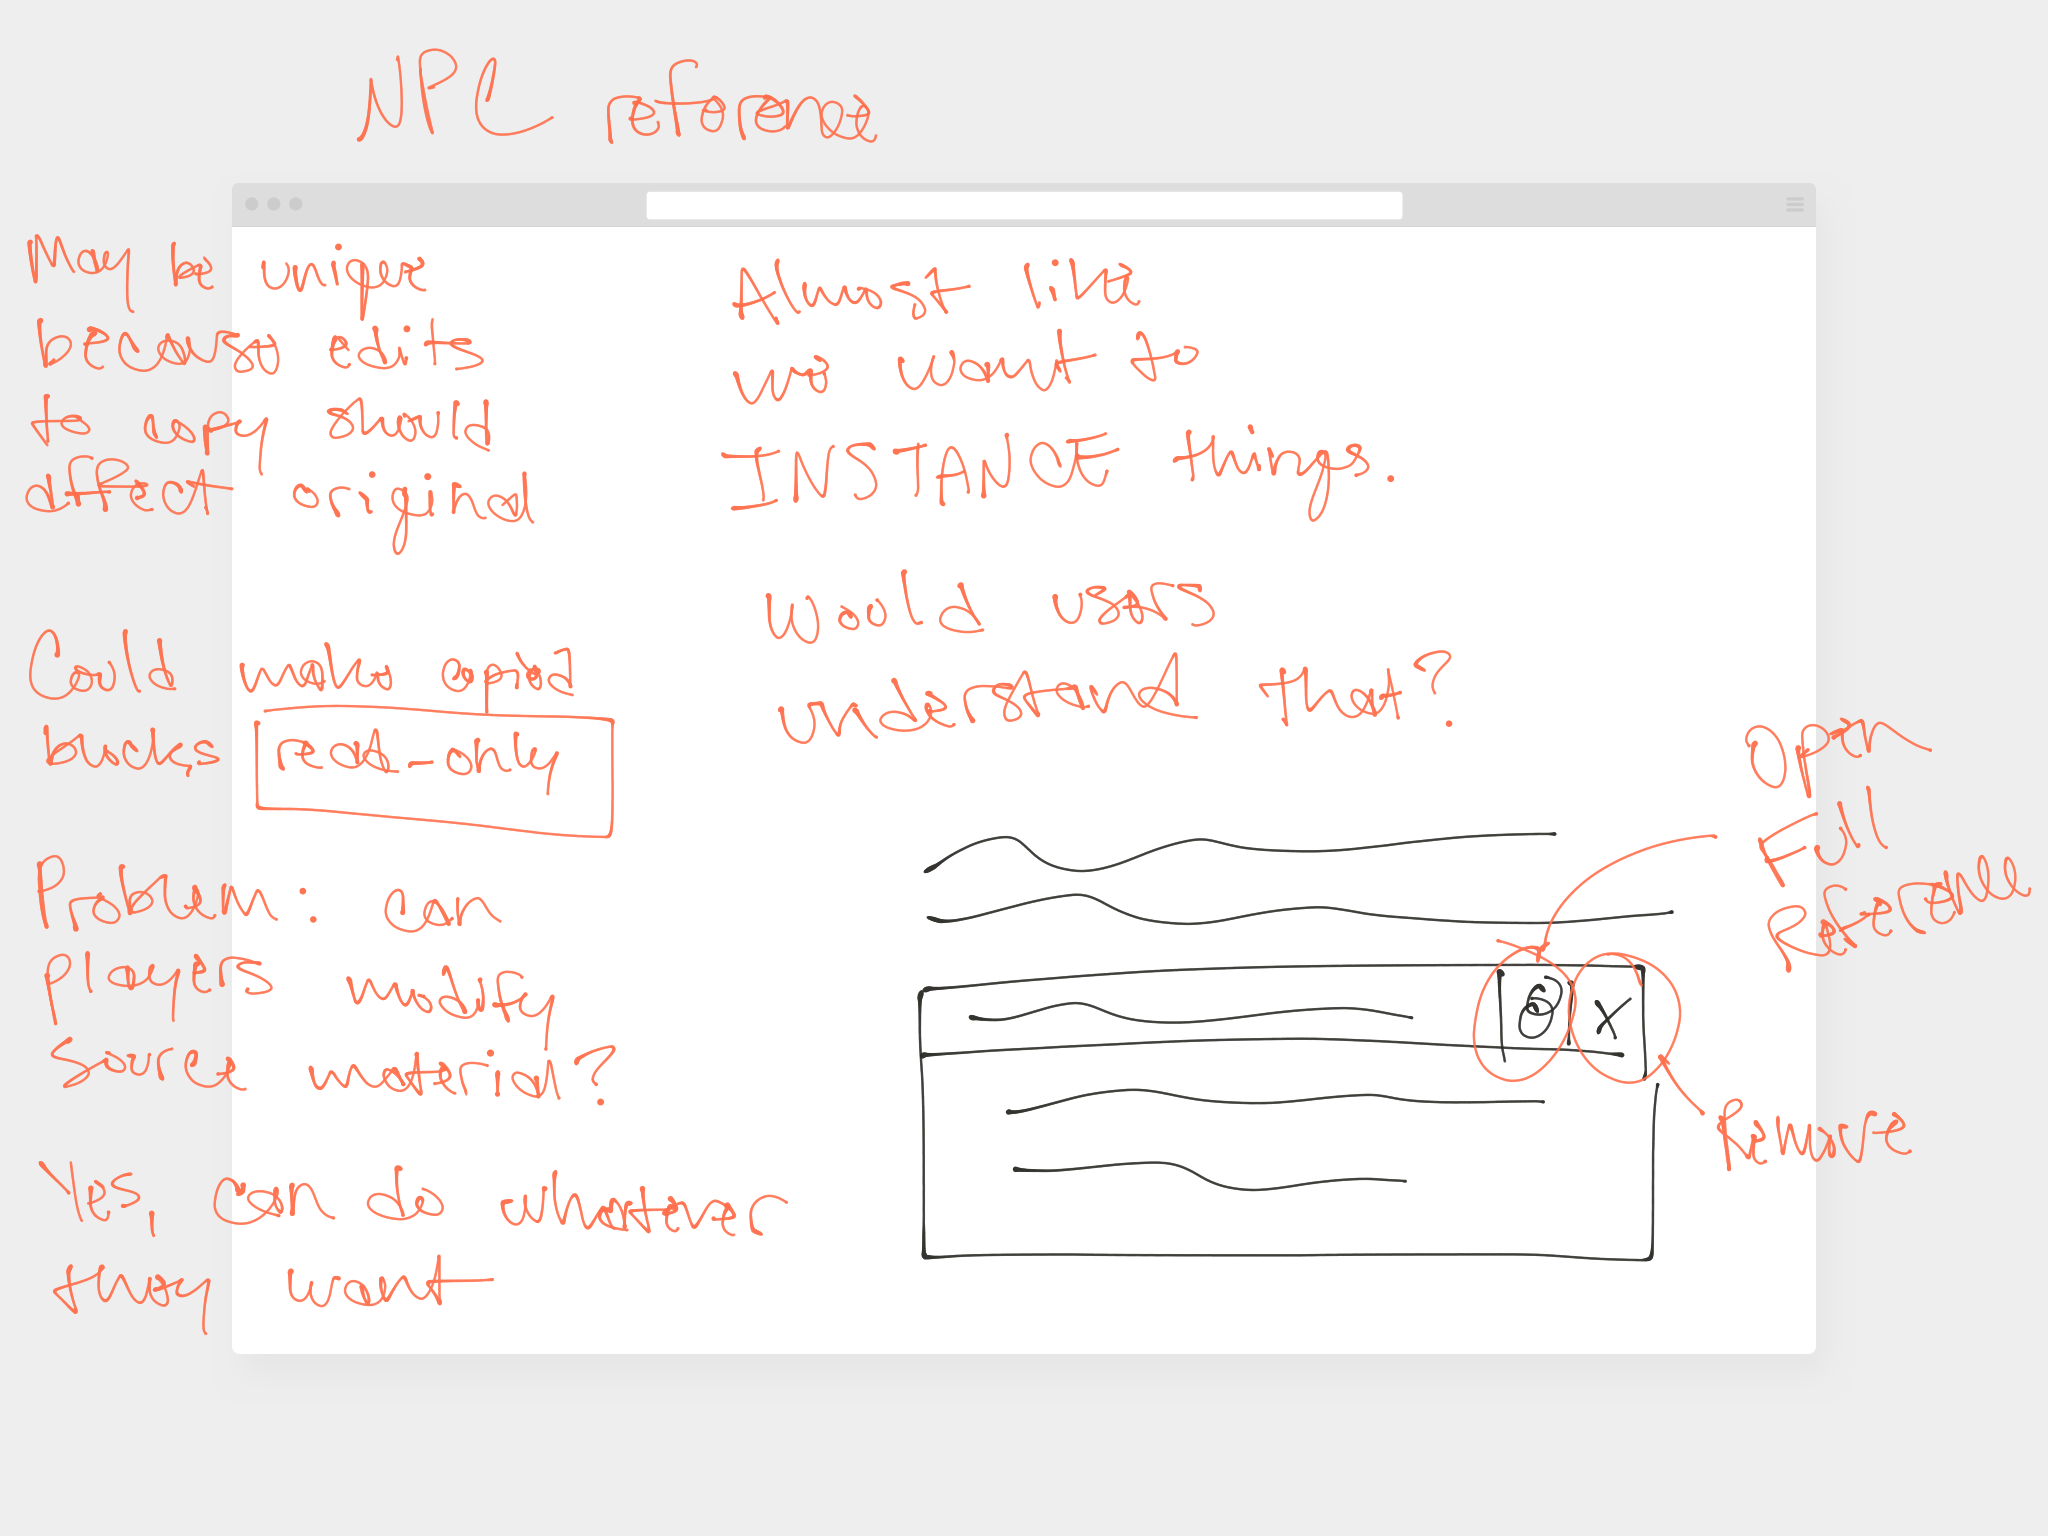 NPC reference
May be unique
because edits
to copy should
affect original
Could make copied
blocks read-only
Problem: can
players modify
source material?
Yes, can do whatever
they want
Almost like
we want to
INSTANCE things.
Would users
understand that?
Open
Full
Reference
X
Remove